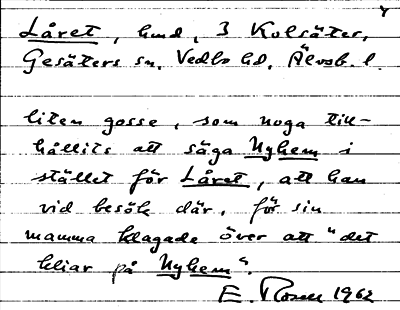 Låret, hmd, 3 Kolsäter,
Gesäters sn, Vedbo hd, Älvsb. l.
liten gosse, som noga till-
hållits att säga Nyhem i
stället för Låret, att han
vid besök där, för sin
mamma klagade över att "det
kliar på Nyhem".
E. Rosen 1962